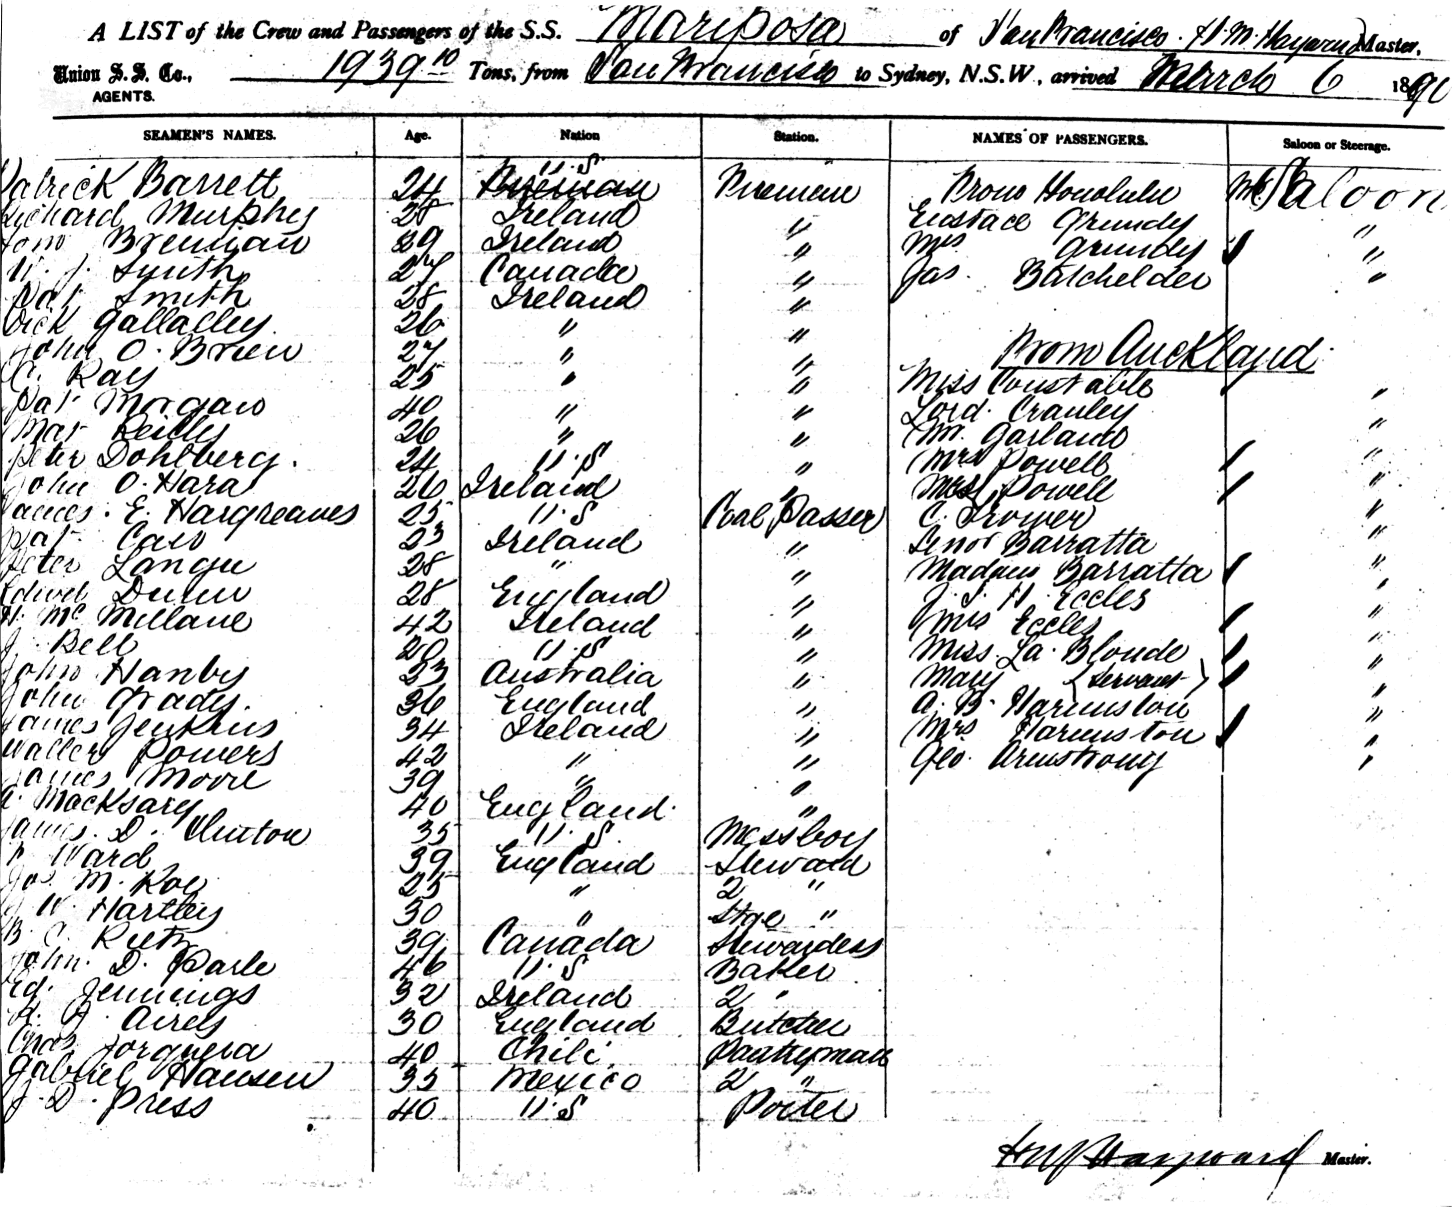 A LIST of the Crew and Passengers of the S.S. Mariposa of San Francisco. H. M. Hayward Master,
Union S. S. Co., 1939 10 Tons, from San Francisco to Sydney, N.S.W., arrived March 6 1890
AGENTS.
SEAMEN'S NAMES. Age. Nation Station. NAMES OF PASSENGERS. Saloon or Steerage.
Patrick Barrett 24 U.S. Fireman From Honolulu Saloon
Richard Murphy 28 Ireland " Eustace Grundy "
Tom Brennan 29 Ireland " Mrs Grundy "
W. J. Smith 27 Canada " Jas. Batchelder "
Pat Smith 28 Ireland "
Dick Gallagley 26 " "
John O. Brien 27 " " From Auckland.
C. Kay 25 " " Miss Constable "
Pat Morgan 40 " " Lord. Cranley "
Mat Reilly 26 " " Mr. Garland "
Peter Dohlberg. 24 U.S " Mrs Powell "
John O. Hara 26 Ireland " Miss Powell "
James. E. Hargreaves 25 U.S Coal Passer C. Trower "
Pat Cain 23 Ireland " Senor Barratta "
Peter Langu 28 " " Madam Barratta "
Edwd Dunn 28 England " J. S. H. Eccles "
H. Mc Millane 42 Ireland " Mrs Eccles "
J. Bell 20 U.S " Miss. La. Blonde "
John Hanby 23 Australia " Mary (Servant) "
John Grady. 36 England " A. B. Harmston "
James Jenkins 34 Ireland " Mrs Harmston "
Walter Powers 42 " " Geo. Armstrong "
James Moore 39 " "
A. Macksary 40 England. "
James. D. Hutton 35 U.S. Messboy
Ward 39 England Steward
Jos. M. Roe 25 " 2 "
J. W. Hartley 30 " Stge "
B. C. Ruth 39 Canada Stewardess
John. D. Parle 46 U.S Baker
Ed. Jennings 32 Ireland 2 "
R. J. Aires 30 England Butcher
Chas. Jorguera 40 Chili. Pantryman
Gabriel Hansen 35 Mexico 2 "
J. D. Press 40 U.S Porter
H M Hayward Master.